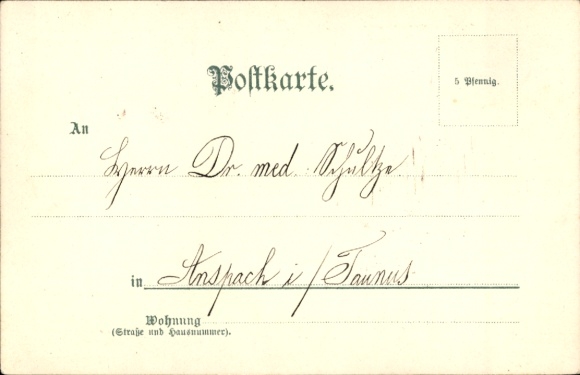 Postkarte.
5 Pfennig.
An
Herrn Dr. med. Schultze
in Anspach i/Taunus
Wohnung
(Straße und Hausnummer).